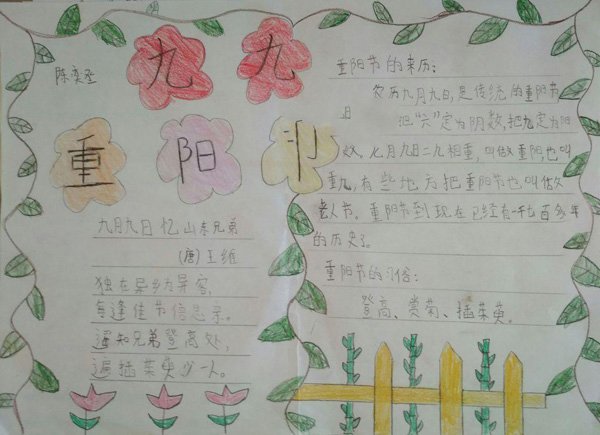 陈奕圣
九九
重阳节
九月九日忆山东兄弟
(唐)王维
独在异乡为异客,
每逢佳节倍思亲。
遥知兄弟登高处,
遍插茱萸少一人。
重阳节的来历:
农历九月九日,是传统的重阳节,
把“六”定为阴数,把九定为阳
数。九月九日二九相重,叫做重阳,也叫
重九,有些地方把重阳节也叫做
老人节。重阳节到现在已经有一千七百多年
的历史了。
重阳节的习俗:
登高、赏菊、插茱萸。